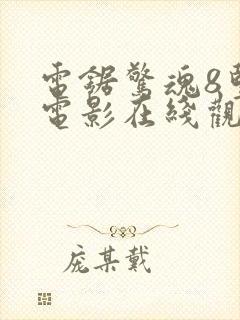 電鋸驚魂8
電影在綫觀
庞某戴